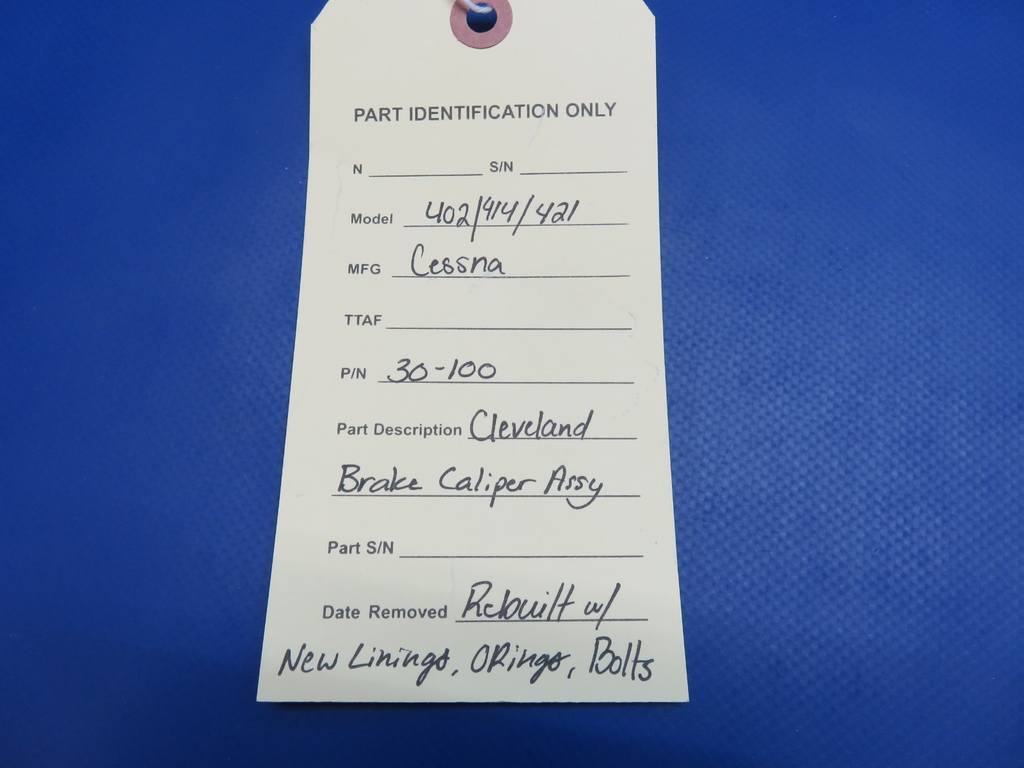 PART IDENTIFICATION ONLY
N S/N
Model 402/414/421
MFG Cessna
TTAF
P/N 30-100
Part Description Cleveland
Brake Caliper Assy
Part S/N
Date Removed Rebuilt w/
New Linings, ORings, Bolts